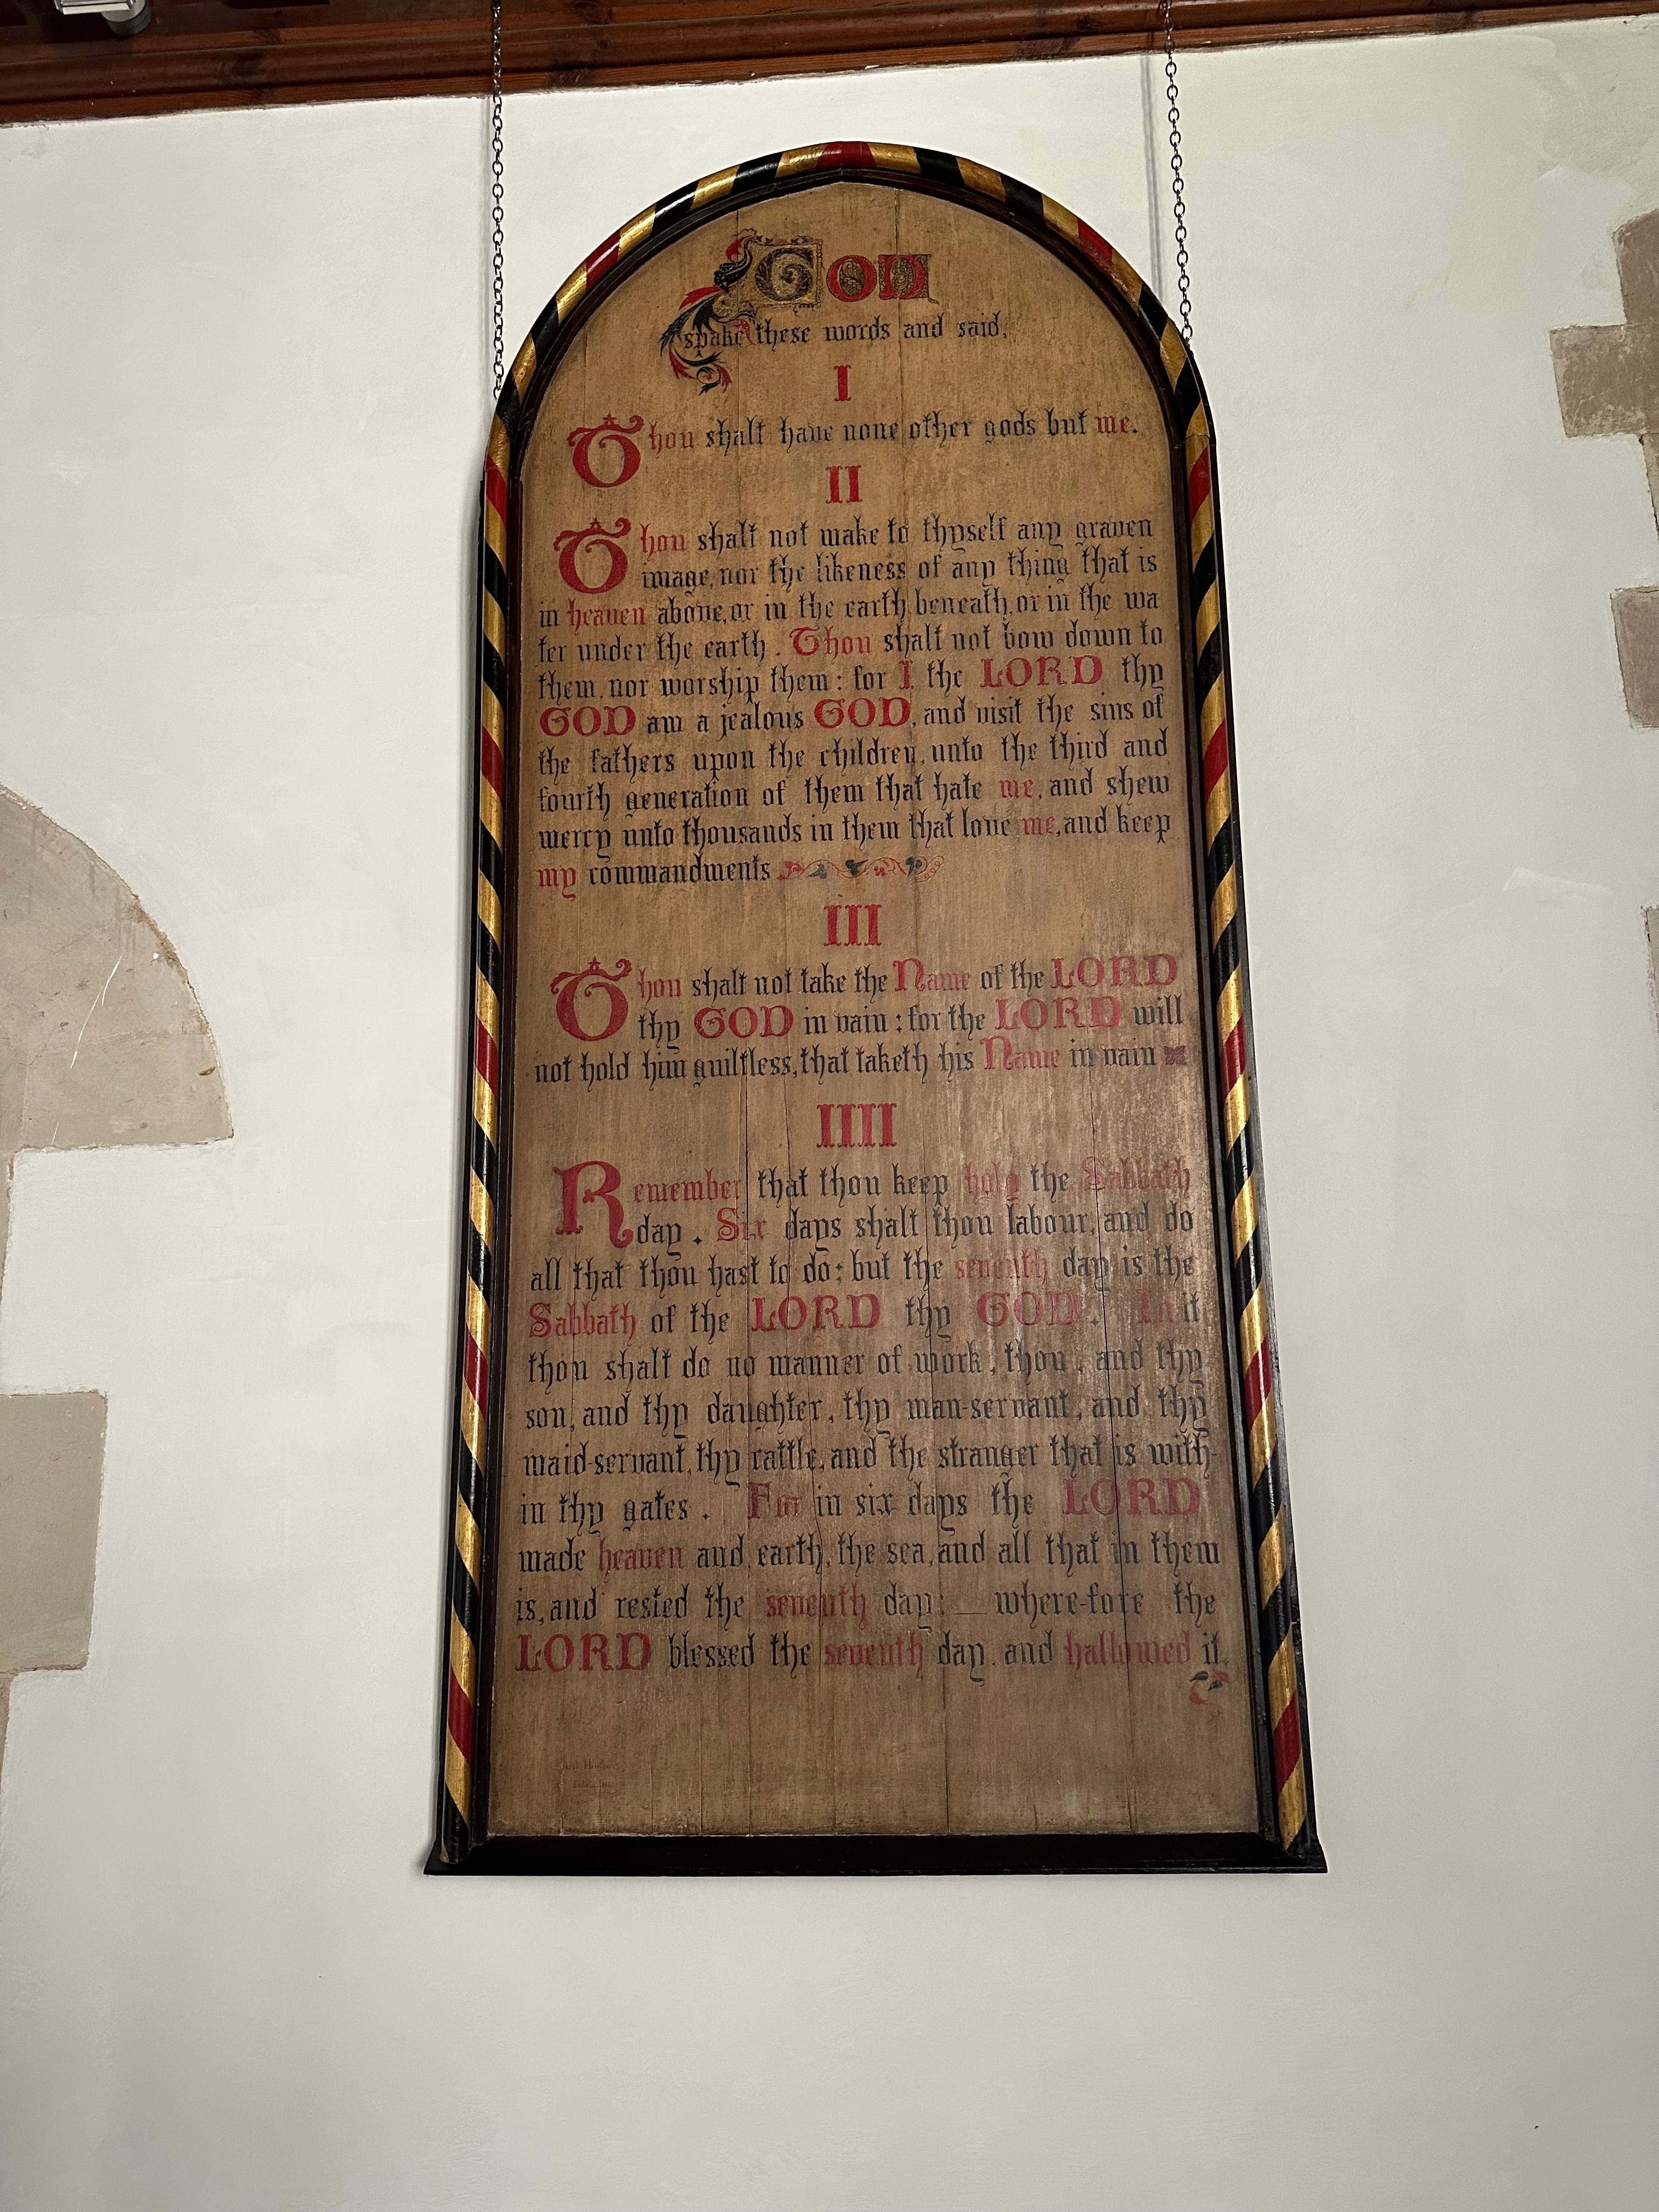 GOD
spake these words and said,
I
Thou shalt have none other gods but me.
II
Thou shalt not make to thyself any graven
image, nor the likeness of any thing that is
in heaven above, or in the earth beneath, or in the wa
ter under the earth. Thou shalt not bow down to
them, nor worship them: for I the LORD thy
GOD am a jealous GOD, and visit the sins of
the fathers upon the children, unto the third and
fourth generation of them that hate me, and shew
mercy unto thousands in them that love me, and keep
my commandments
III
Thou shalt not take the Name of the LORD
thy GOD in vain: for the LORD will
not hold him guiltless, that taketh his Name in vain
IIII
Remember that thou keep holy the Sabbath
day. Six days shalt thou labour, and do
all that thou hast to do; but the seventh day is the
Sabbath of the LORD thy GOD. In it
thou shalt do no manner of work, thou, and thy
son, and thy daughter, thy man-servant, and thy
maid-servant, thy cattle, and the stranger that is with-
in thy gates. For in six days the LORD
made heaven and earth, the sea, and all that in them
is, and rested the seventh day: where-fore the
LORD blessed the seventh day, and hallowed it.